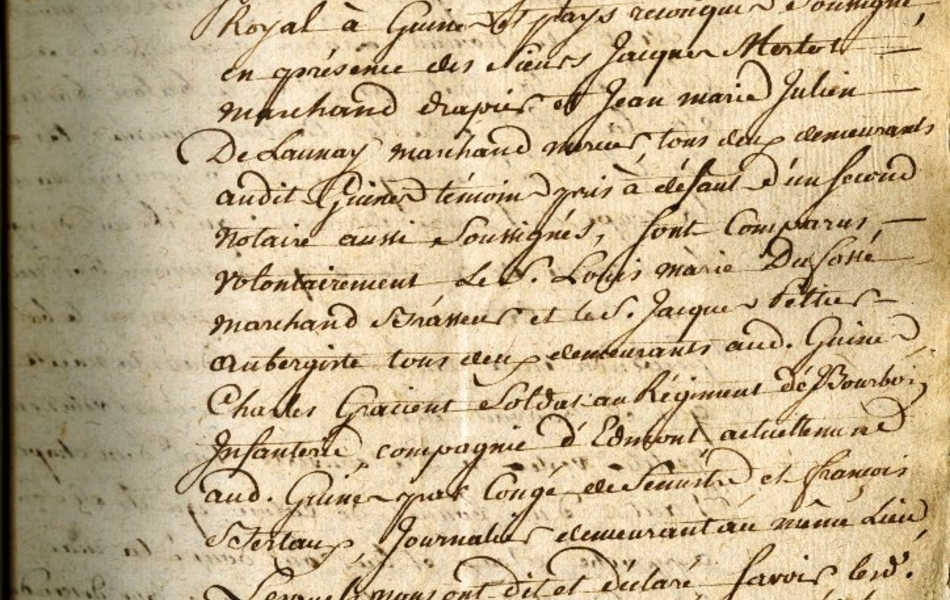 Royal à Guines et pays reconquis soussigné,
en présence des Sieurs Jacques Mertot
marchand drapier et Jean marie Julien
De Launay marchand mercier tous deux demeurants
audit Guines témoins pris à défaut d'un second
Notaire aussi Soussignés, sont Comparus
Volontairement Le S. Louis marie Dufossé
marchand Brasseur et le S. Jacques
Aubergiste tous deux demeurants aud. Guines
Charles Gracient Soldat au Régiment de Bourbon
Infanterie, compagnie d'Edmont actuellement
aud. Guines par Congé de Semestre et françois
Journalier demeurant au même Lieu
Lesquels nous ont dit et déclaré savoir led.